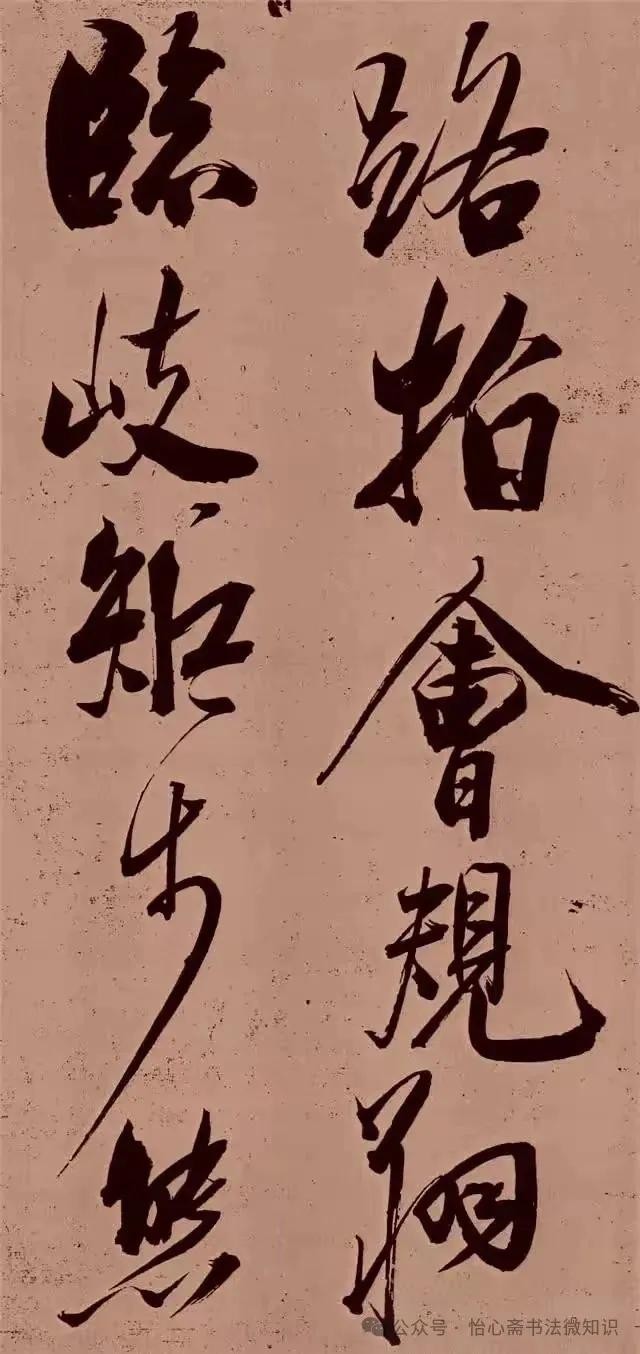 路指會規翔
臨岐矩步態
公众号 · 怡心斋书法微知识